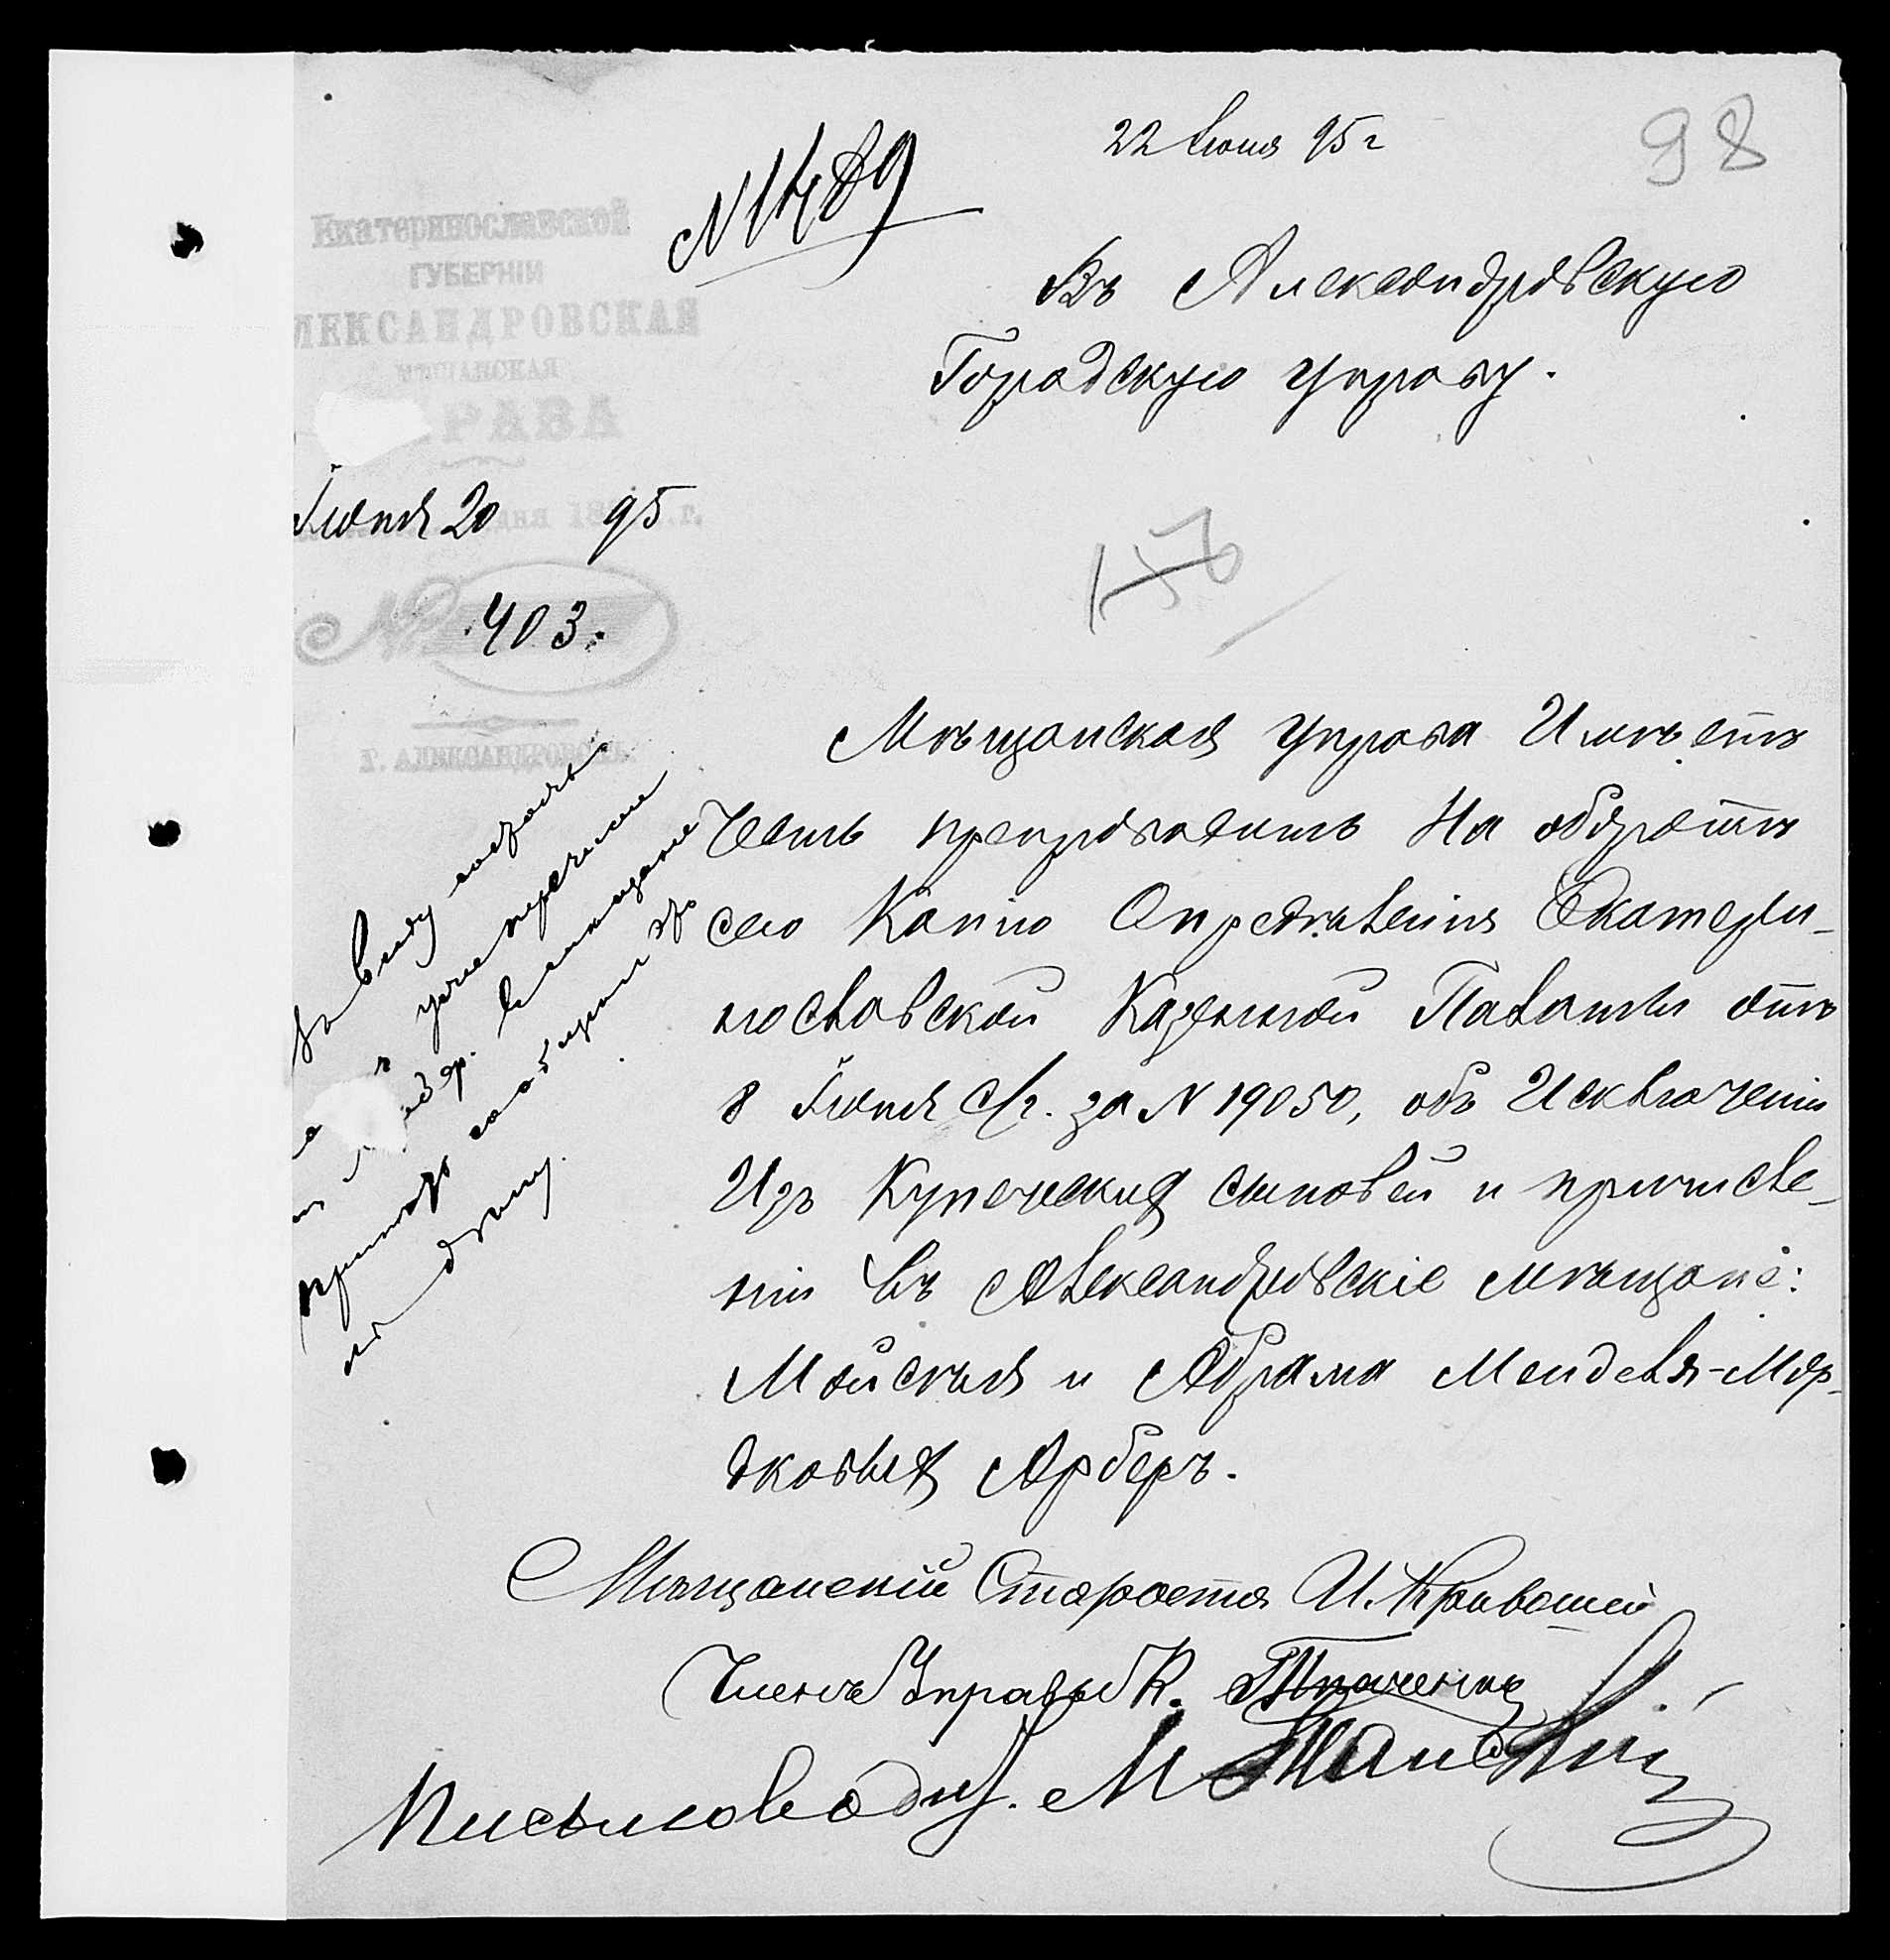 22 Июня 95 г
98
N 1489
Екатеринославской
ГУБЕРНІИ
ЛЕКСАНДРОВСКАЯ
МѢЩАНСКАЯ
РАВА
Іюня 20 дня 1895 г.
№ 403.
Г. АЛЕКСАНДРОВСКЪ.
Въ Александровскую
Городскую управу.
156
Мѣщанская управа Имѣетъ
Честь препроводить На оборотѣ
сего Копію Опредѣленія Екатери-
нославской Казенной Палаты отъ
8 Іюня с/г. за N 19050, объ Исключеніи
Изъ Купеческихъ сыновей и причисле-
ніи въ Александровскіе мѣщане:
Мойсѣя и Абрама Менделя-Мор-
дковыхъ Арберъ.
Мѣщанскій Староста И. Кривошей
Членъ Управы К.
Письмоводит. М
въ виду
мѣщане
сообщен
къ дѣлу.